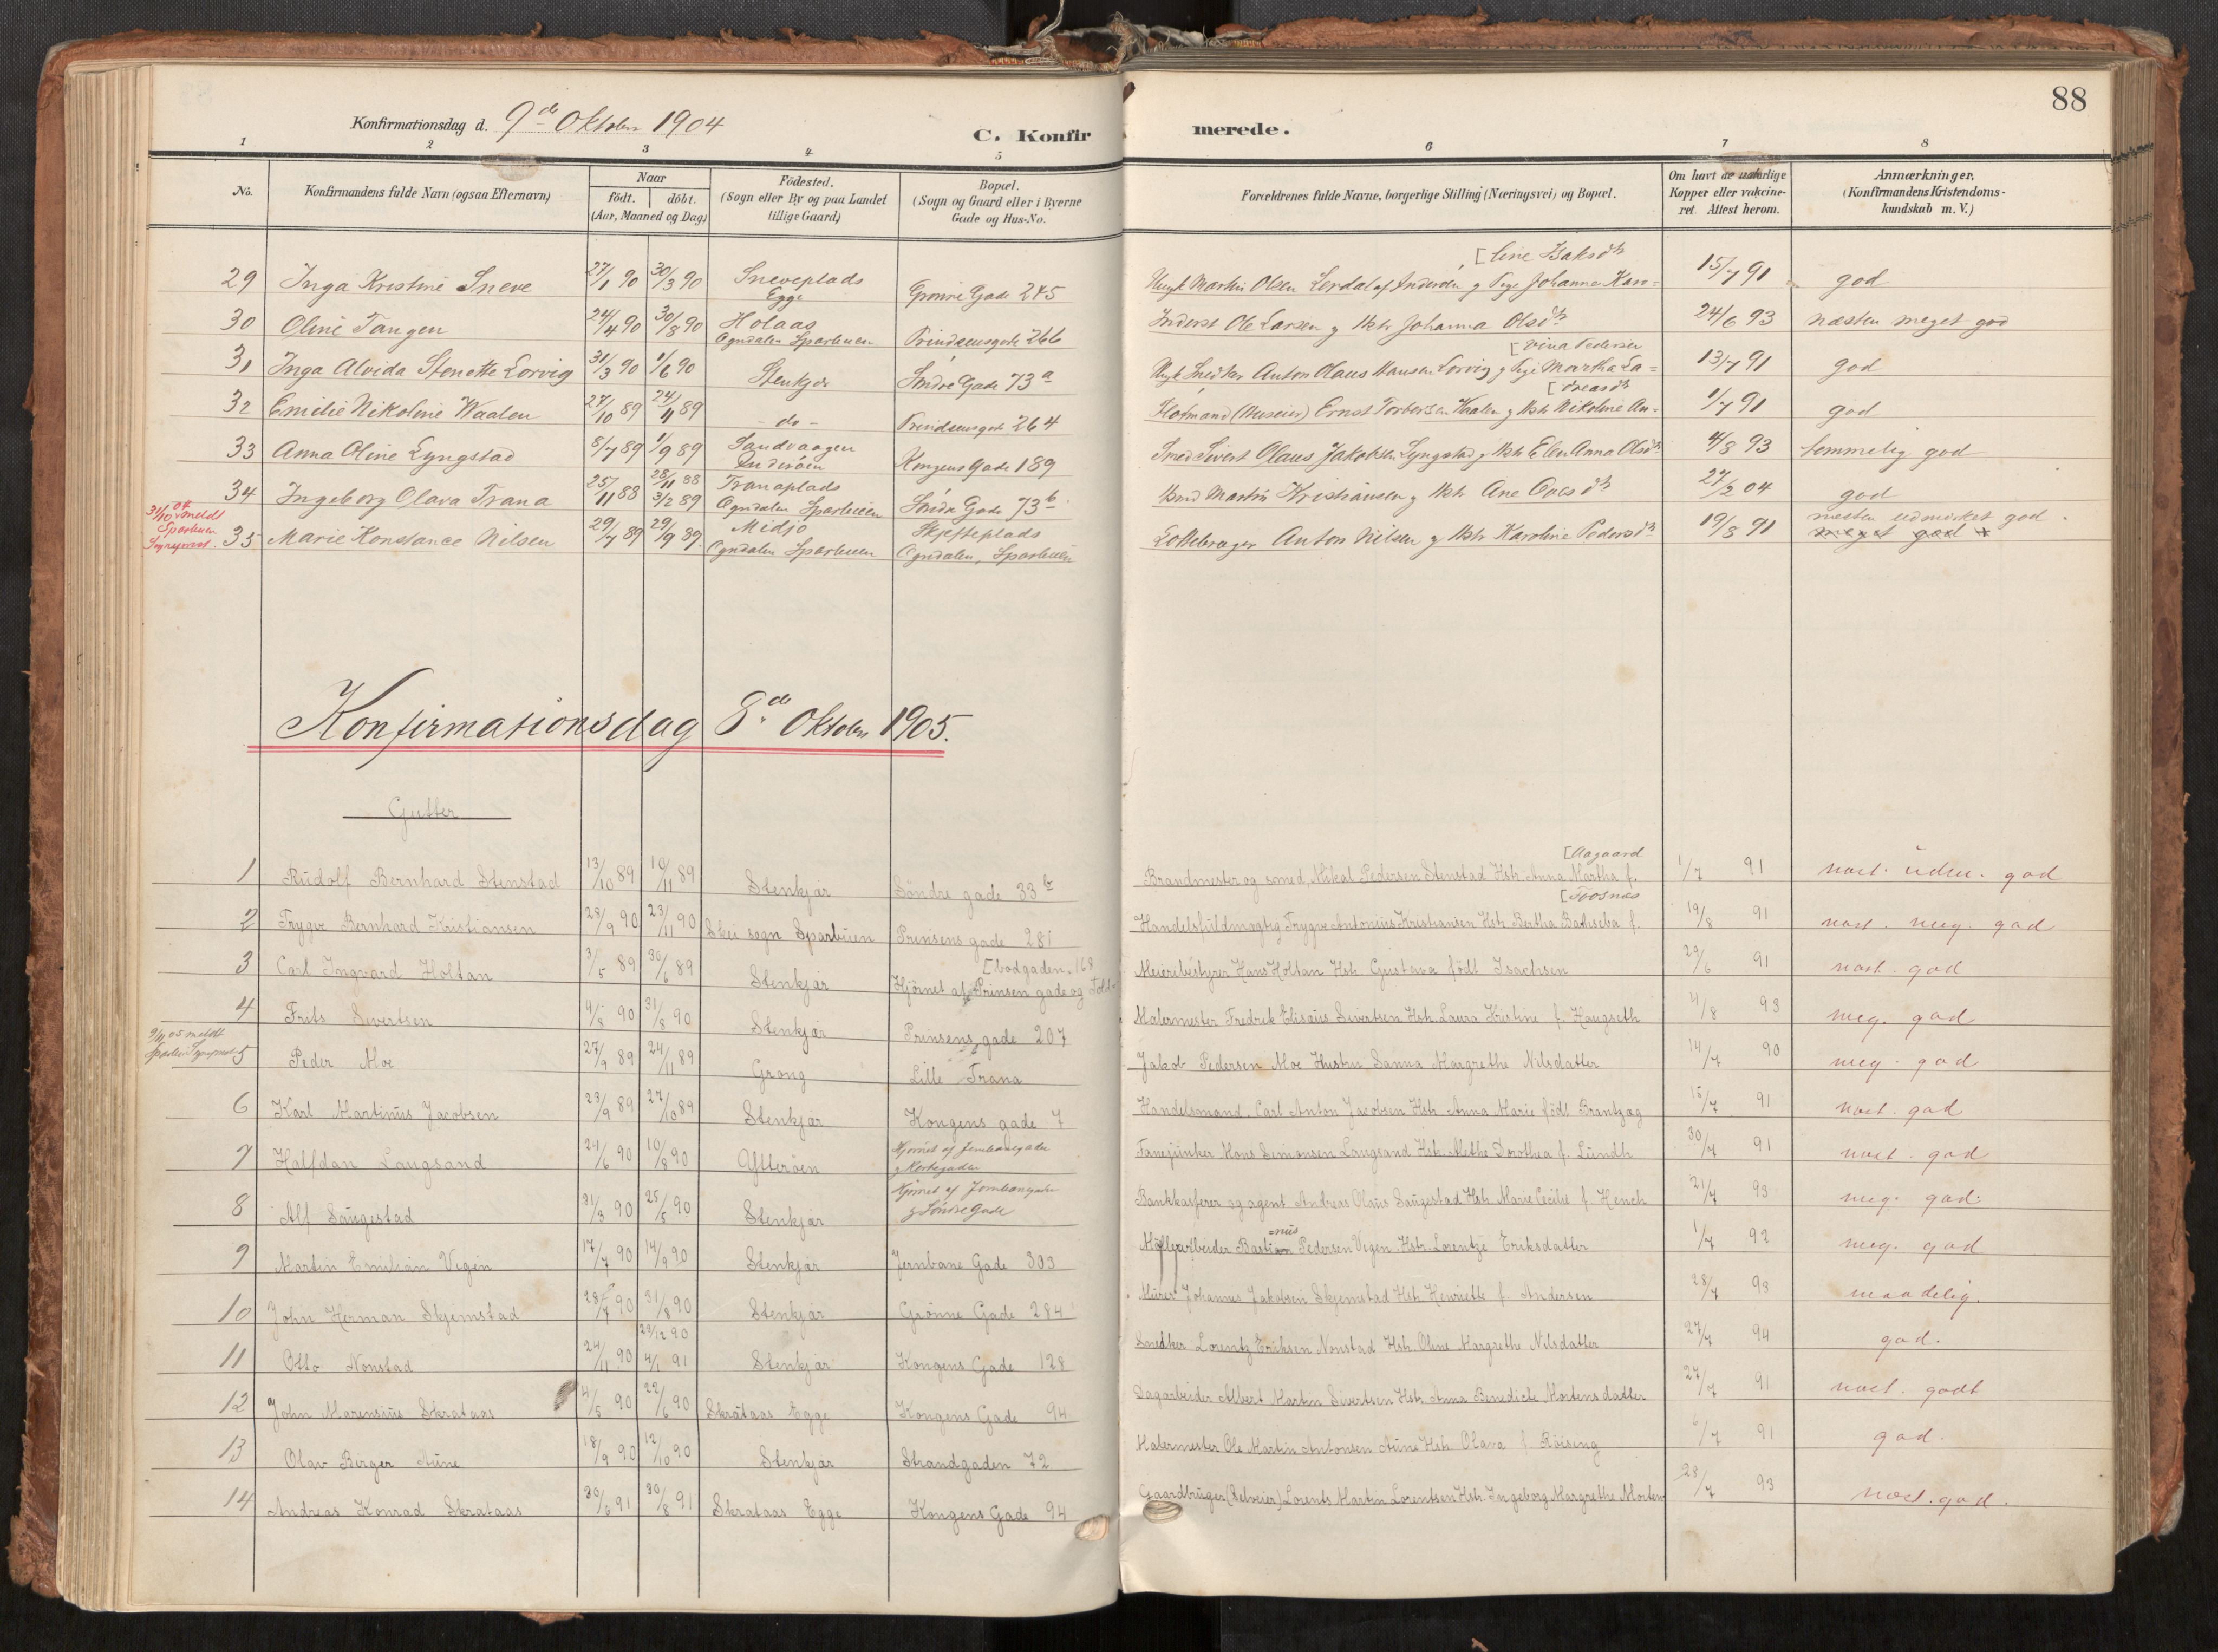 88
Konfirmationsdag d. 9de Oktober 1904
C. Konfir
merede.
1 2 3 4 5 6 7 8
No.
Konfirmandens fulde Navn (ogsaa Efternavn)
Naar
födt. döbt.
(Aar, Maaned og Dag)
Födested.
(Sogn eller By og paa Landet
tillige Gaard)
Bopæl.
(Sogn og Gaard eller i Byerne
Gade og Hus-No.
Forældrenes fulde Navne, borgerlige Stilling (Næringsvei) og Bopæl.
Om havt de naturlige
Kopper eller vakcine-
ret. Attest herom.
Anmærkninger.
(Konfirmandens Kristendoms-
kundskab m. V.)
[line Isaksdtr
29 Inga Kristine Sneve 27/1 90 30/3 90 Sneveplads Egge Grönne Gade 245 Ungk Martin Olsen Lerdal af Inderöen g Pige Johanna Karo= 15/7 91 god
30 Oline Tangen 24/4 90 30/8 90 Holaas Ogndalen Sparbuen Prindsensgade 266 Inderst Ole Larsen g Hstr Johanna Olsdtr 24/6 93 næsten meget god
[vina Pedersen
31 Inga Alvida Stenette Lorvig 31/3 90 1/6 90 Stenkjær Söndre Gade 73a Ungk Snedker Anton Olaus Hansen Lorvig g Pige Martha La= 13/7 91 god
[dreasdtr
32 Emilie Nikoline Waalen 27/10 89 24/11 89 - do - Prindsensgade 264 Flotmand (Huseier) Ernst Torbersen Waalen g Hstr Nikoline An= 1/7 91 god
33 Anna Oline Lyngstad 8/7 89 1/9 89 Sandvaagen Inderöen Kongens Gade 189 Smed Sivert Olaus Jakobsen Lyngstad g Hstr Elen Anna Olsdtr 4/8 93 temmelig god
34 Ingeborg Olava Trana 25/11 88 28/11 88 3/2 89 Tranaplads Ogndalen Sparbuen Söndre Gade 73b Hsmd Martin Kristiansen g Hstr Ane Olesdtr 27/2 04 god
31/10 04 meldt Sparbuen Sogneprest.
35 Marie Konstance Nilsen 29/7 89 29/9 89 Midjo Ogndalen Sparbuen Skjefteplads Ogndalen, Sparbuen Lottebruger Anton Nilsen g Hstr Karoline Pedersdtr 19/8 91 næsten udmærket god.
meget god
Konfirmationsdag 8de Oktober 1905.
Gutter
[Aagaard
1 Rudolf Bernhard Stenstad 13/10 89 10/11 89 Stenkjær Söndre gade 33b Brandmester og smed Mikal Pedersen Stenstad Hstr Anna Martha f. 1/7 91 næst. udm. god
[Toosnæs
2 Trygve Bernhard Kristiansen 28/9 90 23/11 90 Skei sogn Sparbuen Prinsens gade 281 Handelsfuldmægtig Trygve Antonius Kristiansen Hstr Bertha Bathseba f. 19/8 91 næst. meg. god
[bodgaden. 168
3 Carl Ingvard Holtan 3/5 89 30/6 89 Stenkjær Hjörnet af Prinsen gade og Told- Meieribestyrer Hans Holtan Hstr. Gustava födt Isachsen 29/6 91 næst. god
4 Frits Sivertsen 9/8 90 31/8 90 Stenkjær Prinsens gade 207 Malermester Fredrik Elisæus Sivertsen Hstr Laura Kristine f. Haugseth 4/8 93 meg. god
9/11 05 meldt
5 Peder Moe 27/9 89 24/11 89 Grong Lille Trana Jakob Pedersen Moe Hustru Sanna Margrethe Nilsdatter 14/7 90 meg. god
6 Karl Martinus Jacobsen 23/9 89 27/10 89 Stenkjær Kongens gade 7 Handelsmand Carl Anton Jacobsen Hstr Anna Marie födt Brantzæg 15/7 91 næst. god
7 Halfdan Langsand 24/6 90 10/8 90 Ytteröen Hjörnet af Jernbanegaden g Kirkegaden Fanejunker Hans Simonsen Langsand Hstr Methe Dorothea f. Lundh 30/7 91 næst. god
8 Alf Saugestad 31/3 90 25/5 90 Stenkjær Hjörnet af Jernbanegaden g Söndre Gade Bankkasserer og agent Andreas Olaus Saugestad Hstr Marie Cecilie f. Hench 21/7 93 meg. god.
9 Martin Emilian Vigen 17/7 90 14/9 90 Stenkjær Jernbane Gade 303 Möllearbeider Bastianus Pedersen Vigen Hstr Lorentze Eriksdatter 1/7 92 meg. god
10 John Herman Skjemstad 28/7 90 31/8 90 Stenkjær Grönne Gade 284 Murer Johannes Jakobsen Skjemstad Hstr Henriette f. Andersen 28/7 93 maadelig.
11 Otto Nonstad 24/11 90 29/12 90 4/1 91 Stenkjær Kongens Gade 128 Snedker Lorentz Eriksen Nonstad Hstr Oline Margrethe Nilsdatter 27/7 94 god.
12 John Marensius Skrataas 4/5 90 22/6 90 Skrataas Egge Kongens Gade 94 Dagarbeider Albert Martin Sivertsen Hstr Anna Benedicte Mortensdatter 27/7 91 næst. godt
13 Olav Birger Aune 18/9 90 12/10 90 Stenkjær Strandgaden 72 Malermester Ole Martin Antonsen Aune Hstr Olava f. Röising 6/7 91 god.
14 Andreas Konrad Skrataas 30/6 91 30/8 91 Skrataas Egge Kongens Gade 94 Gaardbruger (Selveier) Lorents Martin Lorentsen Hstr. Ingeborg Margrethe Morten 28/7 93 næst. god.